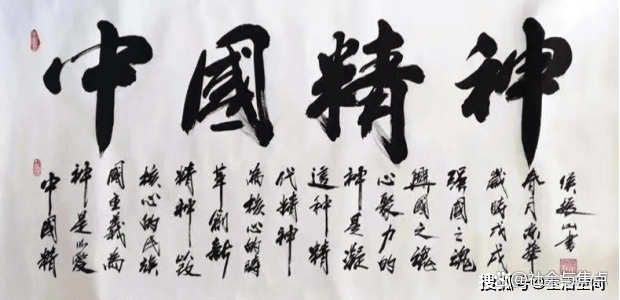 中國精神
中國精
神是以愛
國主義為
核心的民族
精神以改
革創新
為核心的時
代精神
這種精
神是凝
心聚力的
興國之魂
强國之魂
歲時戊戌
月
侯 山書
搜狐号@
@社会与焦点